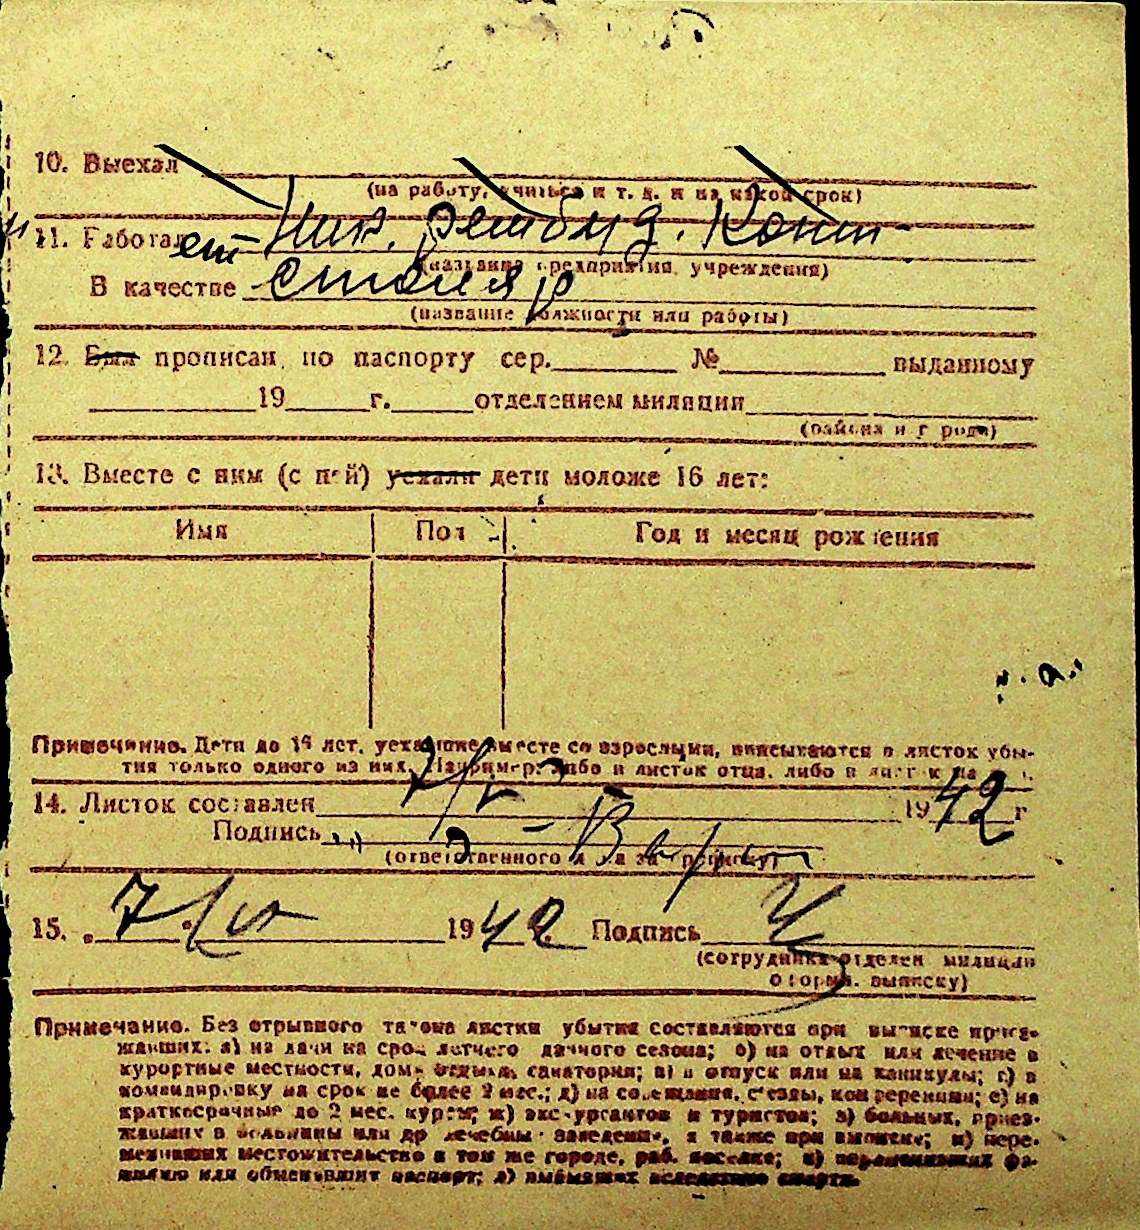 10. Выехал
(на работу, учиться и т. д. и на какой срок)
11. Работает Ник. рембуд. Конт-
(название предприятия, учреждения)
В качестве столяр
(название должности или работы)
12. Был прописан по паспорту сер. № выданному
19 г. отделением милиции
(района и города)
13. Вместе с ним (с ней) уехали дети моложе 16 лет:
Имя Пол Год и месяц рождения
Примечание. Дети до 16 лет, уехавшие вместе со взрослыми, вписываются в листок убы-
тия только одного из них. Например: либо в листок отца, либо в листок
14. Листок составлен 1942 г
Подпись
(ответственного за прописку)
15. 7/ 1942 Подпись
(сотрудника отделен. милиции
оформ. выписку)
Примечание. Без отрывного талона листки убытия составляются при выписке приез-
жавших: а) на дачи на срок летнего дачного сезона; б) на отдых или лечение в
курортные местности, дома отдыха, санатории; в) в отпуск или на каникулы; г) в
командировку на срок не более 2 мес.; д) на совещания, съезды, конференции; е) на
краткосрочные до 2 мес. курсы; ж) экскурсантов и туристов; з) больных, приез-
жавших в больницы или др лечебные заведения, а также при выписке; и) пере-
менивших местожительство в том же городе, раб. поселке; к) переменивших фа-
милию или обменявших паспорт; л) выбывших вследствие смерти.